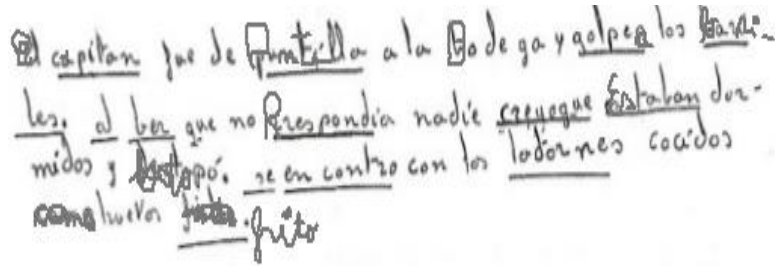 El capitan fue de Puntilla a la Bodega y golpea los barri-
les. al ber que no Respondia nadie creyoque Estaban dor-
midos y destapó. se en contro con los ladornes cocidos
como huevos fritos. frito